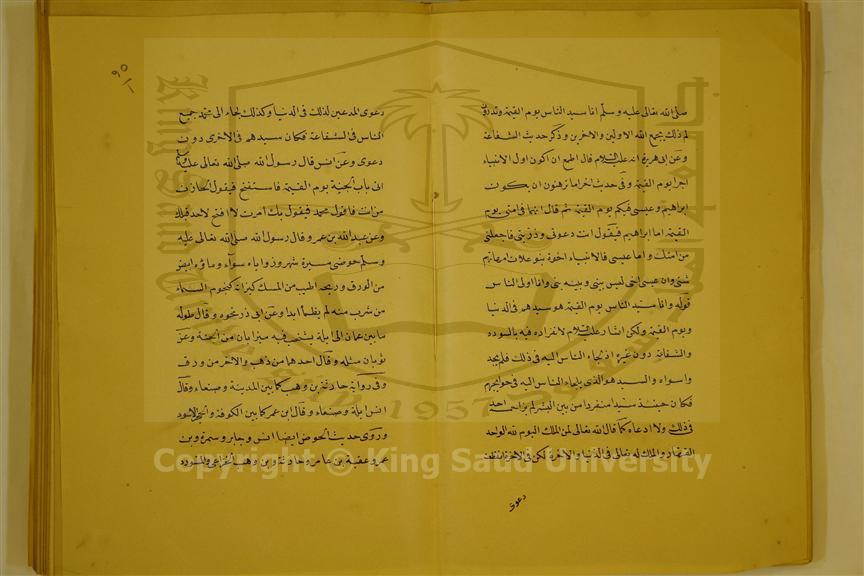 صلى الله تعالى عليه وسلم انا سيد الناس يوم القيمة وتدرون
لم ذلك يجمع الله الاولين والاخرين وذكر حديث الشفاعة
وعن ابى هريرة انه عليه السلام قال اطمع ان اكون اول الانبياء
اجرا يوم القيمة وفى حديث اخر اما ترضون ان يكون
ابراهيم وعيسى فيكم يوم القيمة ثم قال انهما فى امتى يوم
القيمة اما ابراهيم فيقول انت دعوتى وذريتى فاجعلنى
من امتك واما عيسى فالانبياء اخوة بنو علات امهاتهم
شتى وان عيسى اخى ليس بينى وبينه نبى وانا اولى الناس
قوله وانا سيد الناس يوم القيمة هو سيدهم فى الدنيا
ويوم القيمة ولكن اشار عليه السلام لانفراده فيه بالسودد
والشفاعة دون غيره اذ لجاء الناس اليه فى ذلك فلم يجد
واسواه والسيد هو الذى يلجاء الناس اليه فى حوائجهم
فكان حينئذ سيدا منفردا من بين البشر لم يزاحمه احد
فى ذلك ولا ادعاه كما قال الله تعالى لمن الملك اليوم لله الواحد
القهار والملك له تعالى فى الدنيا والاخرة لكن فى الاخرة انقطعت
دعوى
٩٥
دعوى المدعين لذلك فى الدنيا وكذلك لجاء الى محمد جميع
الناس فى الشفاعة فكان سيدهم فى الاخرى دون
دعوى وعن انس قال رسول الله صلى الله تعالى عليه
اتى باب الجنة يوم القيمة فاستفتح فيقول الخازن
من انت فاقول محمد فيقول بك امرت لا افتح لاحد قبلك
وعن عبد الله بن عمر وقال رسول الله صلى الله تعالى عليه
وسلم حوضى مسيرة شهر وزواياه سواء وماؤه ابيض
من الورق وريحه اطيب من المسك كيزانه كنجوم السماء
من شرب منه لم يظمأ ابدا وعن ابى ذر نحوه وقال طوله
ما بين عمان الى ايلة يشخب فيه ميزابان من الجنة وعن
ثوبان مثله وقال احدهما من ذهب والاخر من ورق
وفى رواية حارثة بن وهب كما بين المدينة وصنعاء وقال
انس ايلة وصنعاء وقال ابن عمر كما بين الكوفة والحجر الاسود
وروى حديث الحوض ايضا انس وجابر وسمرة وبن
عمر وعقبة بن عامر وحارثة بن وهب الخزاعى والمستورد
Copyright © King Saud University
1957